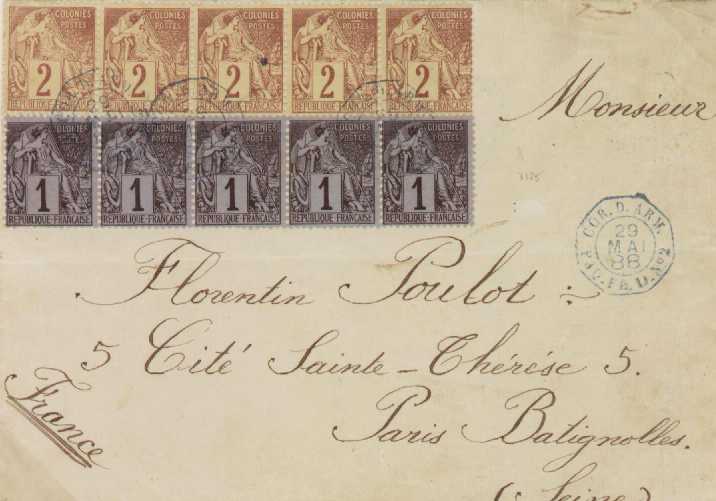 COLONIES POSTES 2 REPUBLIQUE FRANÇAISE
COLONIES POSTES 2 REPUBLIQUE FRANÇAISE
COLONIES POSTES 2 REPUBLIQUE FRANÇAISE
COLONIES POSTES 2 REPUBLIQUE FRANÇAISE
COLONIES POSTES 2 REPUBLIQUE FRANÇAISE
COLONIES POSTES 1 REPUBLIQUE FRANÇAISE
COLONIES POSTES 1 REPUBLIQUE FRANÇAISE
COLONIES POSTES 1 REPUBLIQUE FRANÇAISE
COLONIES POSTES 1 REPUBLIQUE FRANÇAISE
COLONIES POSTES 1 REPUBLIQUE FRANÇAISE
Monsieur
COR. D. ARM.
29
MAI
88
PAQ. FR. D. No2
Florentin Poulot
5 Cité Sainte-Thérèse 5.
Paris Batignolles.
(Seine)
France